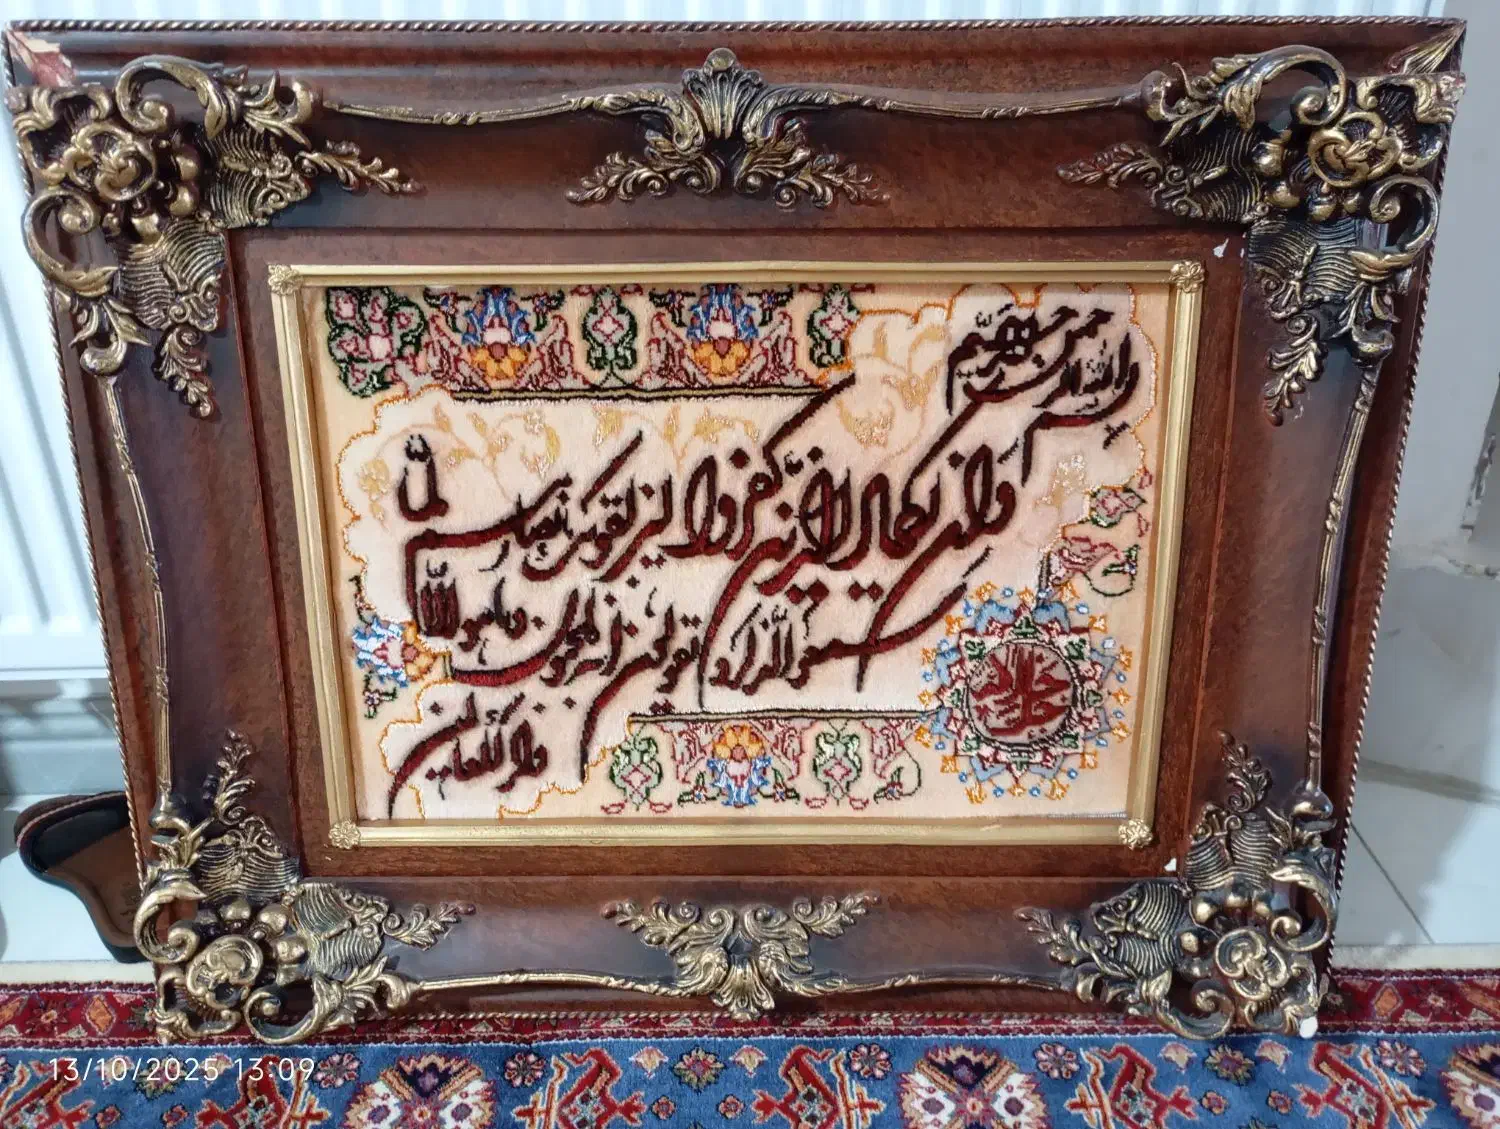 بسم الله الرحمن الرحیم
وان یکاد الذین کفروا لیزلقونک بابصارهم لما
سمعوا الذکر و یقولون انه لمجنون و ما هو الا
ذکر للعالمین
13/10/2025 13:09